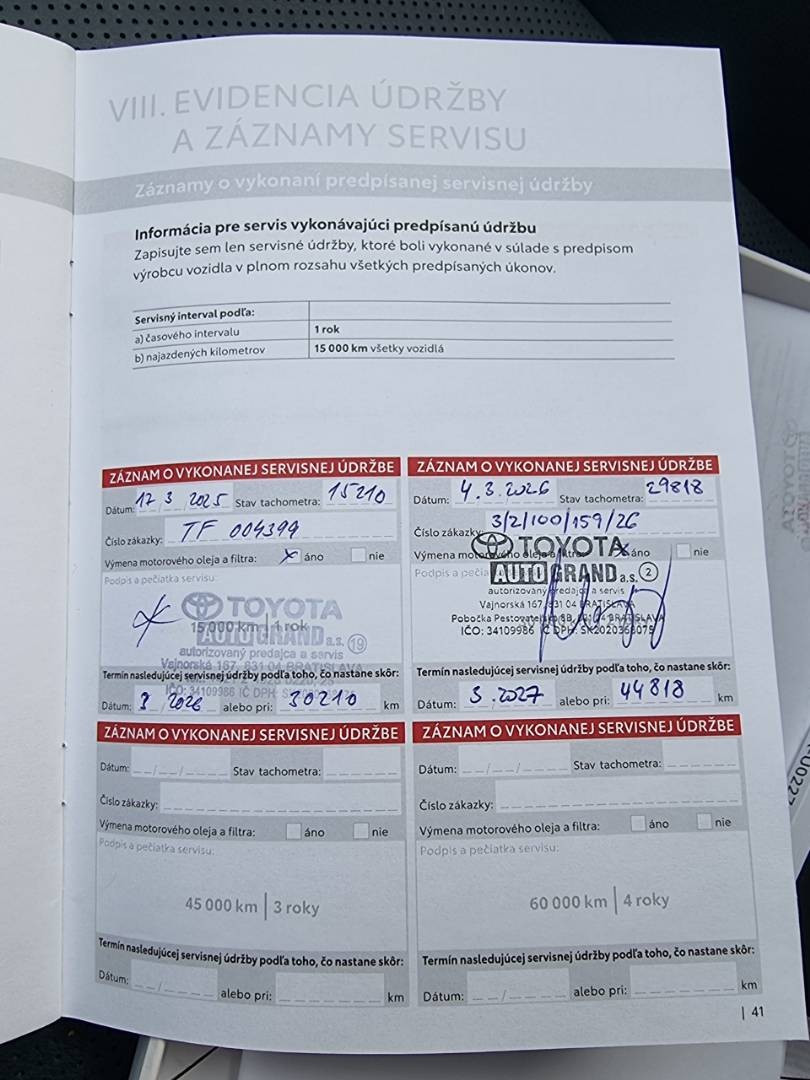 VIII. EVIDENCIA ÚDRŽBY
A ZÁZNAMY SERVISU
Záznamy o vykonaní predpísanej servisnej údržby
Informácia pre servis vykonávajúci predpísanú údržbu
Zapisujte sem len servisné údržby, ktoré boli vykonané v súlade s predpisom
výrobcu vozidla v plnom rozsahu všetkých predpísaných úkonov.
Servisný interval podľa:
a) časového intervalu 1 rok
b) najazdených kilometrov 15 000 km všetky vozidlá
ZÁZNAM O VYKONANEJ SERVISNEJ ÚDRŽBE
Dátum: 12 3 2025 Stav tachometra: 15210
Číslo zákazky: TF 004399
Výmena motorového oleja a filtra: x áno nie
Podpis a pečiatka servisu:
TOYOTA
15 000 km | 1 rok
AUTO GRAND a.s. 19
autorizovaný predajca a servis
Vajnorská 167, 831 04 BRATISLAVA
IČO: 34109986 IČ DPH:
Termín nasledujúcej servisnej údržby podľa toho, čo nastane skôr:
Dátum: 3 2026 alebo pri: 30210 km
ZÁZNAM O VYKONANEJ SERVISNEJ ÚDRŽBE
Dátum: 4.3.2026 Stav tachometra: 29818
Číslo zákazky: 3/2/100/159/26
Výmena motorového oleja a filtra: x áno nie
Podpis a pečiatka
TOYOTA
AUTO GRAND a.s. 2
autorizovaný predajca a servis
Vajnorská 167, 831 04 BRATISLAVA
Pobočka Pestovateľská BRATISLAVA
IČO: 34109986 IČ DPH: SK2020368075
Termín nasledujúcej servisnej údržby podľa toho, čo nastane skôr:
Dátum: 3.2027 alebo pri: 44818 km
ZÁZNAM O VYKONANEJ SERVISNEJ ÚDRŽBE
Dátum: Stav tachometra:
Číslo zákazky:
Výmena motorového oleja a filtra: áno nie
Podpis a pečiatka servisu:
45 000 km | 3 roky
Termín nasledujúcej servisnej údržby podľa toho, čo nastane skôr:
Dátum: alebo pri: km
ZÁZNAM O VYKONANEJ SERVISNEJ ÚDRŽBE
Dátum: Stav tachometra:
Číslo zákazky:
Výmena motorového oleja a filtra: áno nie
Podpis a pečiatka servisu:
60 000 km | 4 roky
Termín nasledujúcej servisnej údržby podľa toho, čo nastane skôr:
Dátum: alebo pri: km
| 41